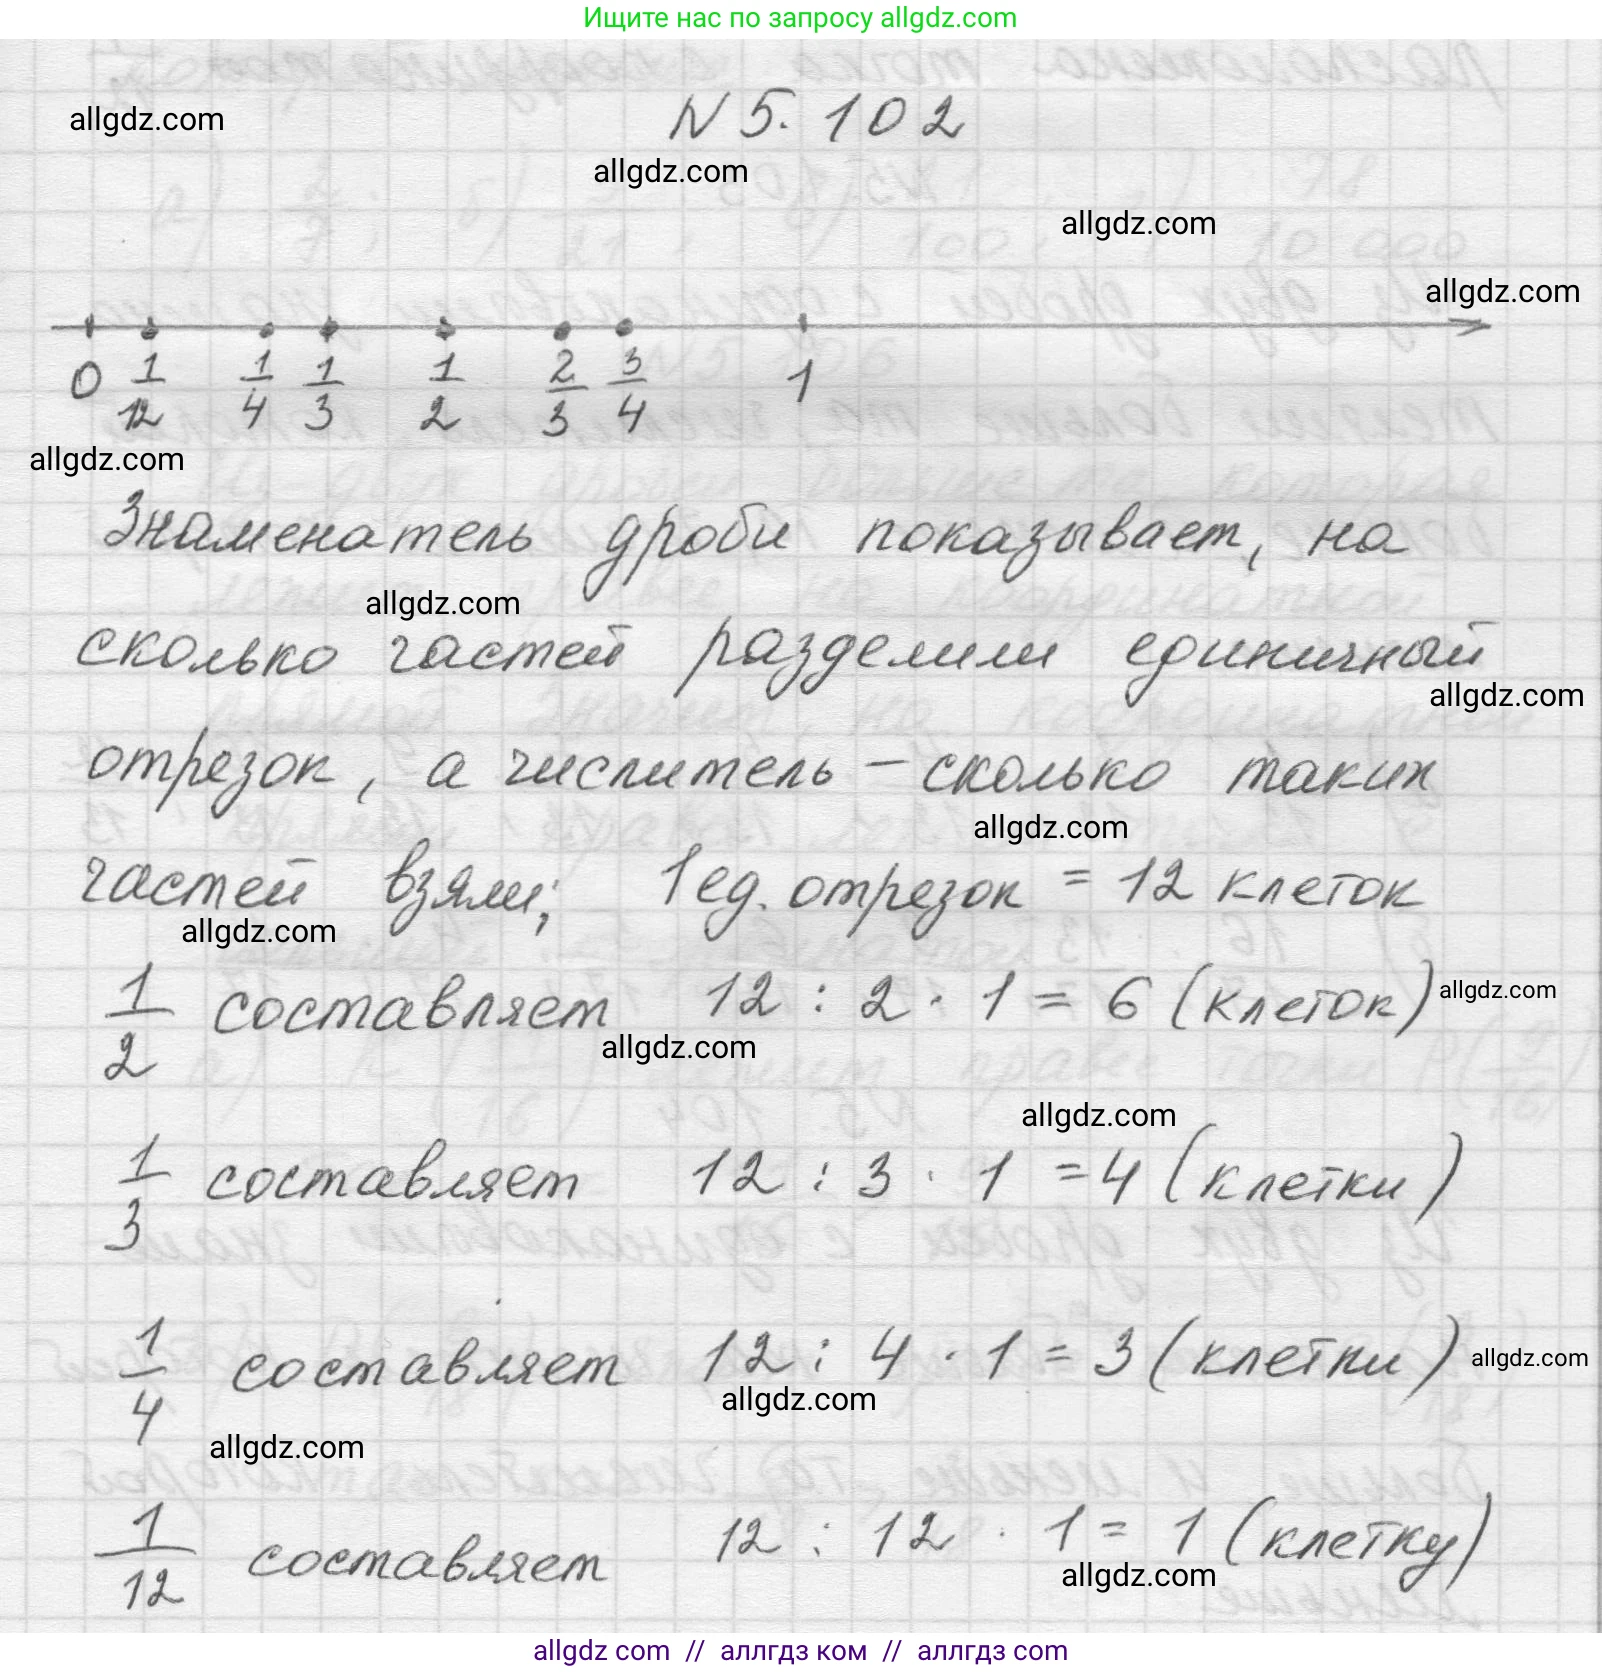 Ищите нас по запросу allgdz.com
allgdz.com
N 5. 102
allgdz.com
allgdz.com
allgdz.com
0 1/12 1/4 1/3 1/2 2/3 3/4 1
allgdz.com
Знаменатель дроби показывает, на
allgdz.com
сколько частей разделили единичный
allgdz.com
отрезок, а числитель – сколько таких
allgdz.com
частей взяли; 1 ед. отрезок = 12 клеток
allgdz.com
1/2 составляет 12 : 2 · 1 = 6 (клеток)
allgdz.com
allgdz.com
allgdz.com
1/3 составляет 12 : 3 · 1 = 4 (клетки)
1/4 составляет 12 : 4 · 1 = 3 (клетки)
allgdz.com
allgdz.com
allgdz.com
1/12 составляет 12 : 12 · 1 = 1 (клетку)
allgdz.com
allgdz com // аллгдз ком // allgdz com